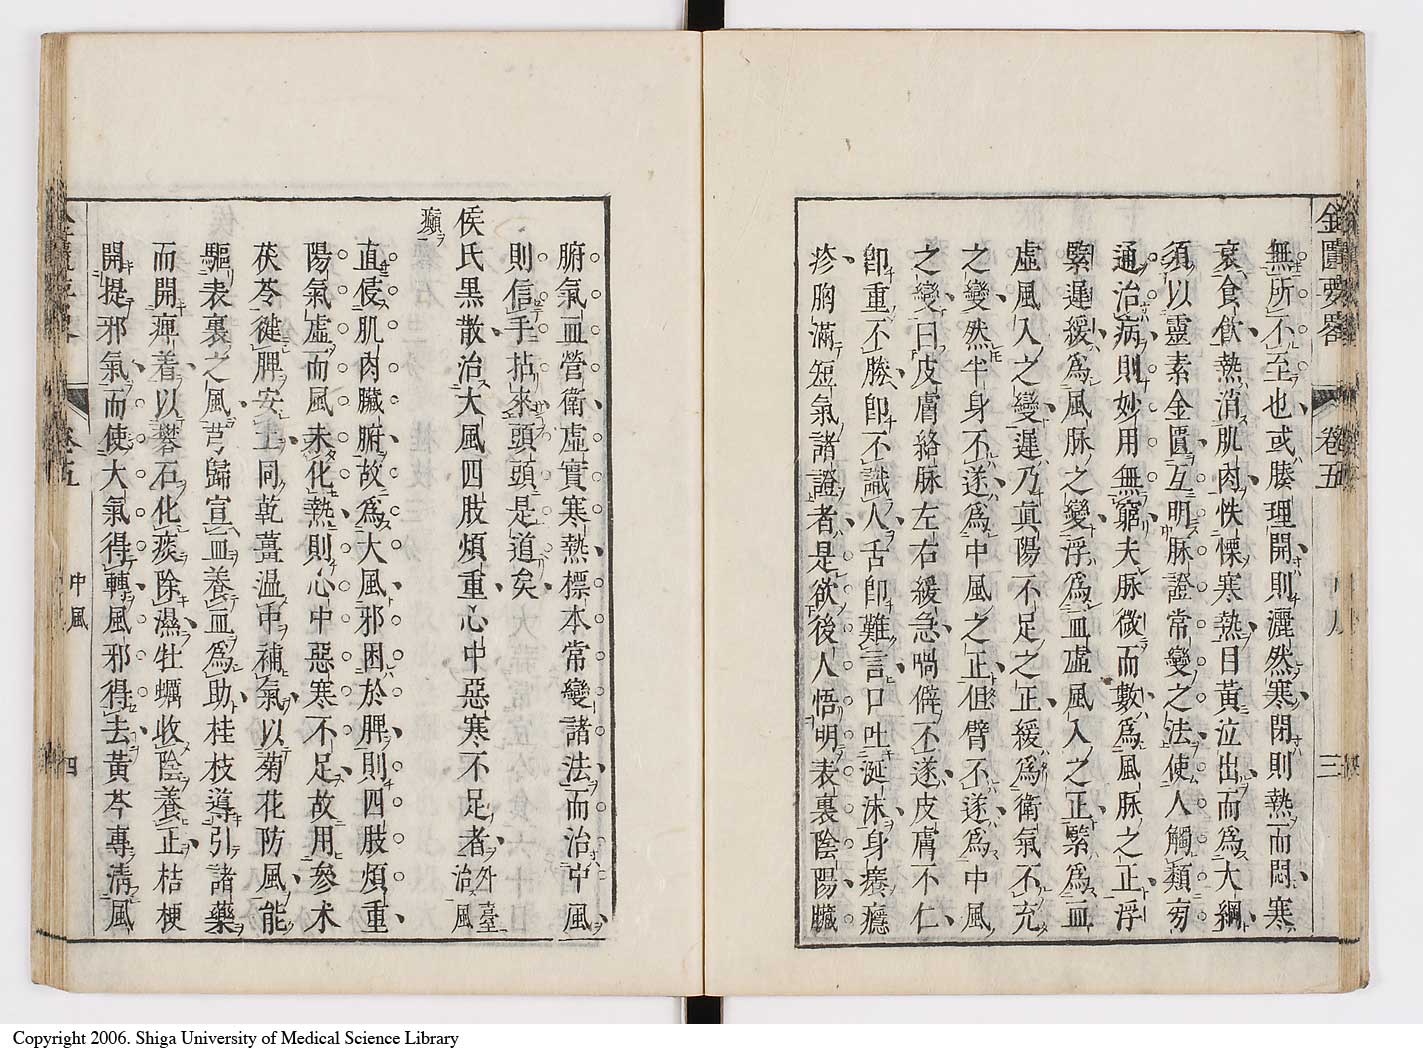 無所不至也或腠理開則灑然寒閉則熱而悶寒
衰食飲熱消肌肉怢慄寒熱目黃泣出而爲大綱
須以靈素金匱互明脉證常變之法使人觸類旁
通治病則妙用無窮夫脉微而數爲風脉之正浮
緊遲緩爲風脉之變浮爲血虛風入之正緊爲血
虛風入之變遲乃眞陽不足之正緩爲衛氣不充
之變然半身不遂爲中風之正但臂不遂爲中風
之變曰皮膚絡脉左右緩急喎僻不遂皮膚不仁
卽重不勝卽不識人舌卽難言口吐涎沫身癢癮
疹胸滿短氣諸證者是欲後人悟明表裏陰陽臟
金匱要畧
卷五
三
腑氣血營衛虛實寒熱標本常變諸法而治中風
則信手拈來頭頭是道矣
侯氏黑散治大風四肢煩重心中惡寒不足者外臺治風
癲
直侵肌肉臟腑故爲大風邪困於脾則四肢煩重
陽氣虛而風未化熱則心中惡寒不足故用參朮
茯苓健脾安土同乾薑温中補氣以菊花防風能
驅表裏之風芎歸宣血養血爲助桂枝導引諸藥
而開痺着以礬石化痰除濕牡蠣收陰養正桔梗
開提邪氣而使大氣得轉風邪得去黃芩專淸風
卷五
中風
四
Copyright 2006. Shiga University of Medical Science Library